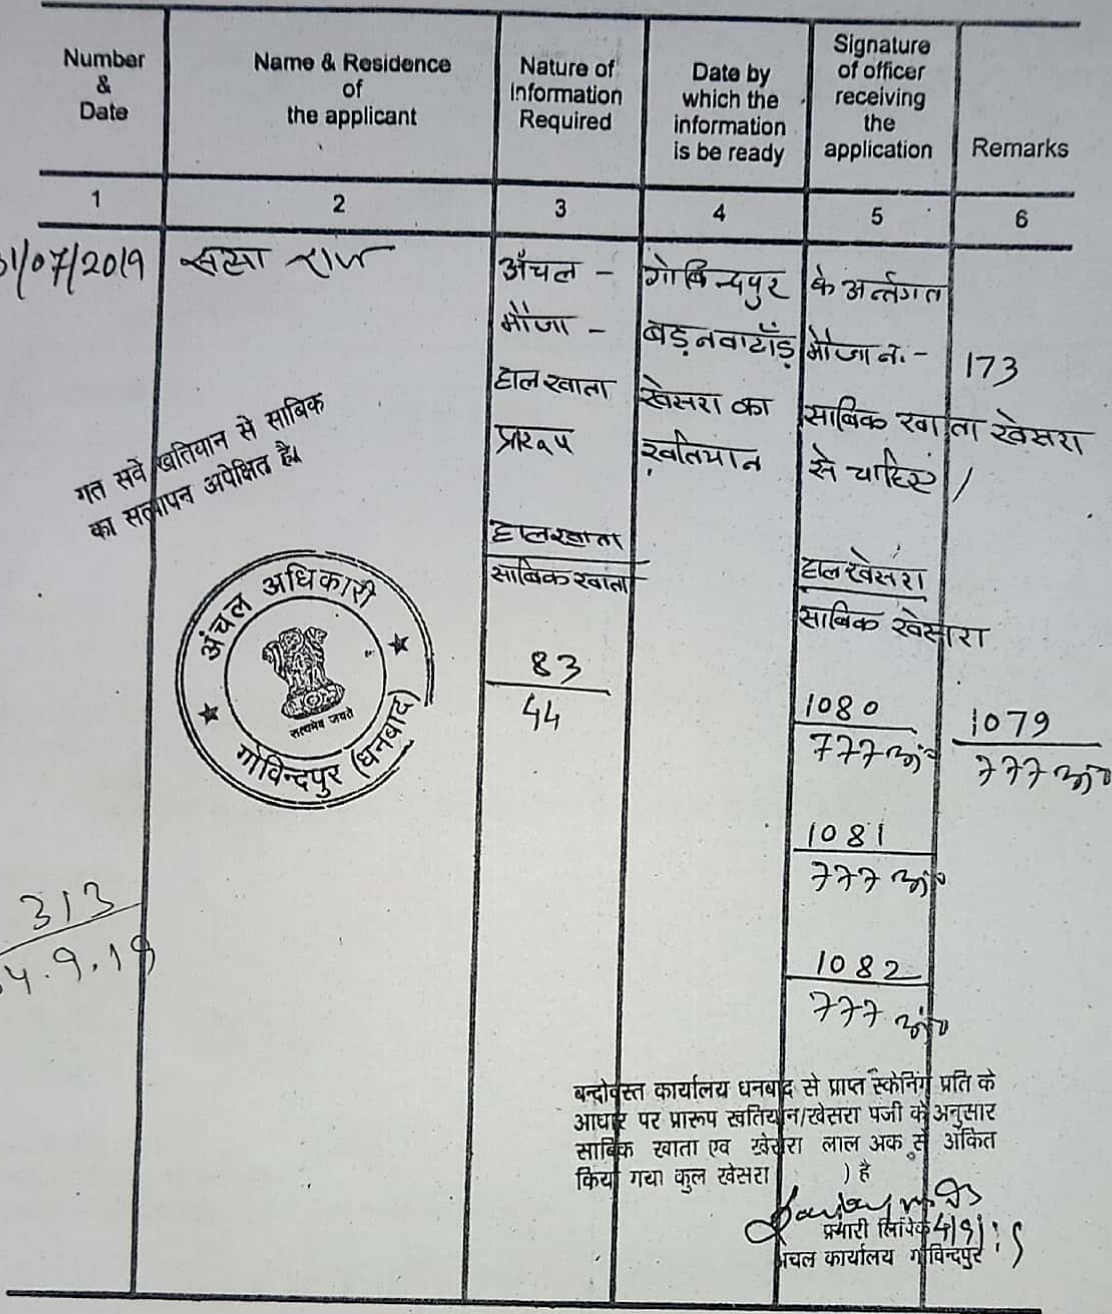 Number & Date
Name & Residence of the applicant
Nature of Information Required
Date by which the information is be ready
Signature of officer receiving the application
Remarks
1 2 3 4 5 6
31/07/2019
राज
अँचल - गोबिन्दपुर के अर्न्तगत
मौजा - बड़नवाटाँड़ मौजा नं.- 173
हाल खाता खेसरा का साबिक खाता खेसरा
प्रारूप खतियान से चाहिए /
गत सर्वे खतियान से साबिक
का सत्यापन अपेक्षित है।
हाल खाता
साबिक खाता
हाल खेसरा
साबिक खेसरा
अंचल अधिकारी
सत्यमेव जयते
गोविन्दपुर (धनबाद)
83
44
1080
777 अं०
1079
777 अं०
1081
777 अं०
1082
777 अं०
313
4.9.19
बन्दोवस्त कार्यालय धनबाद से प्राप्त स्केनिंग प्रति के
आधार पर प्रारूप खतियान/खेसरा पंजी के अनुसार
साबिक खाता एव खेसरा लाल अक से अंकित
किया गया कुल खेसरा ) है
4/9/19
प्रभारी लिपिक
अंचल कार्यालय गोविन्दपुर